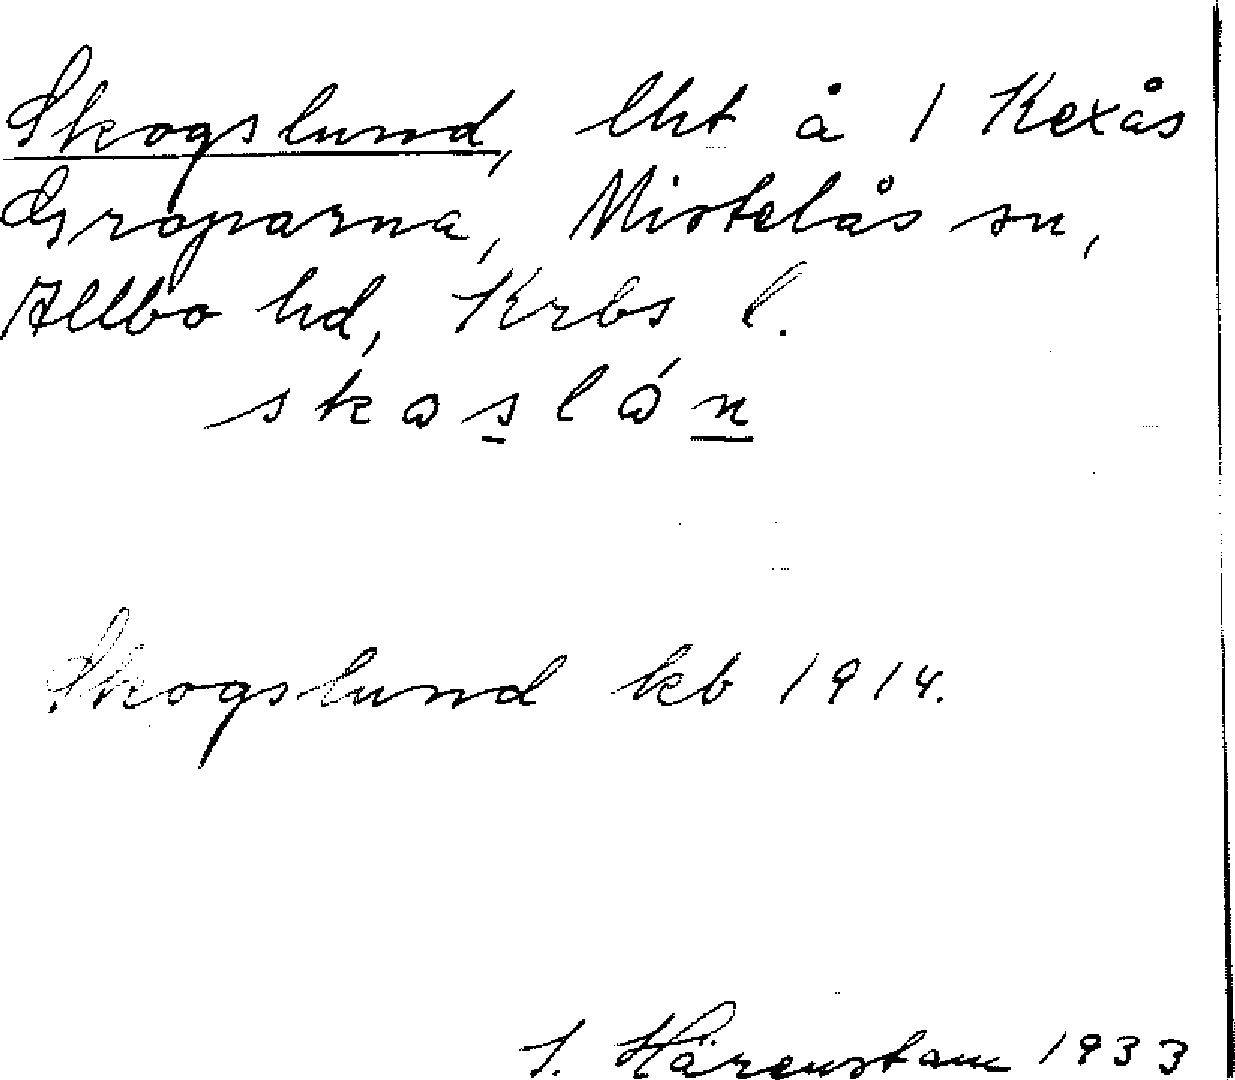 Skogslund, lht å 1 Kexås
Groparna, Mistelås sn,
Allbo hd, Krbs l.
skɷslɷ́n
Skogslund kb 1914.
S. Härenstam 1933